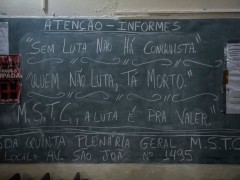 ATENÇÃO - INFORMES
"SEM LUTA NÃO HÁ CONQUISTA"
"QUEM NÃO LUTA, TÁ MORTO."
M.S.T.C., A LUTA É PRA VALER".
ODA QUINTA - PLENÁRIA GERAL M.S.T.C
LOCAL: AV. SÃO JOÃ Nº 1495